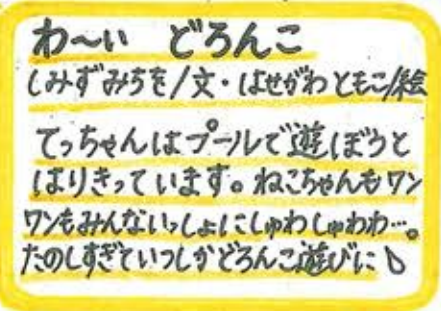 わ～い どろんこ
しみずみちを/文・はせがわともこ/絵
てっちゃんはプールで遊ぼうと
はりきっています。ねこちゃんもワン
ワンもみんないっしょにしゅわしゅわわ…。
たのしすぎていつしかどろんこ遊びに